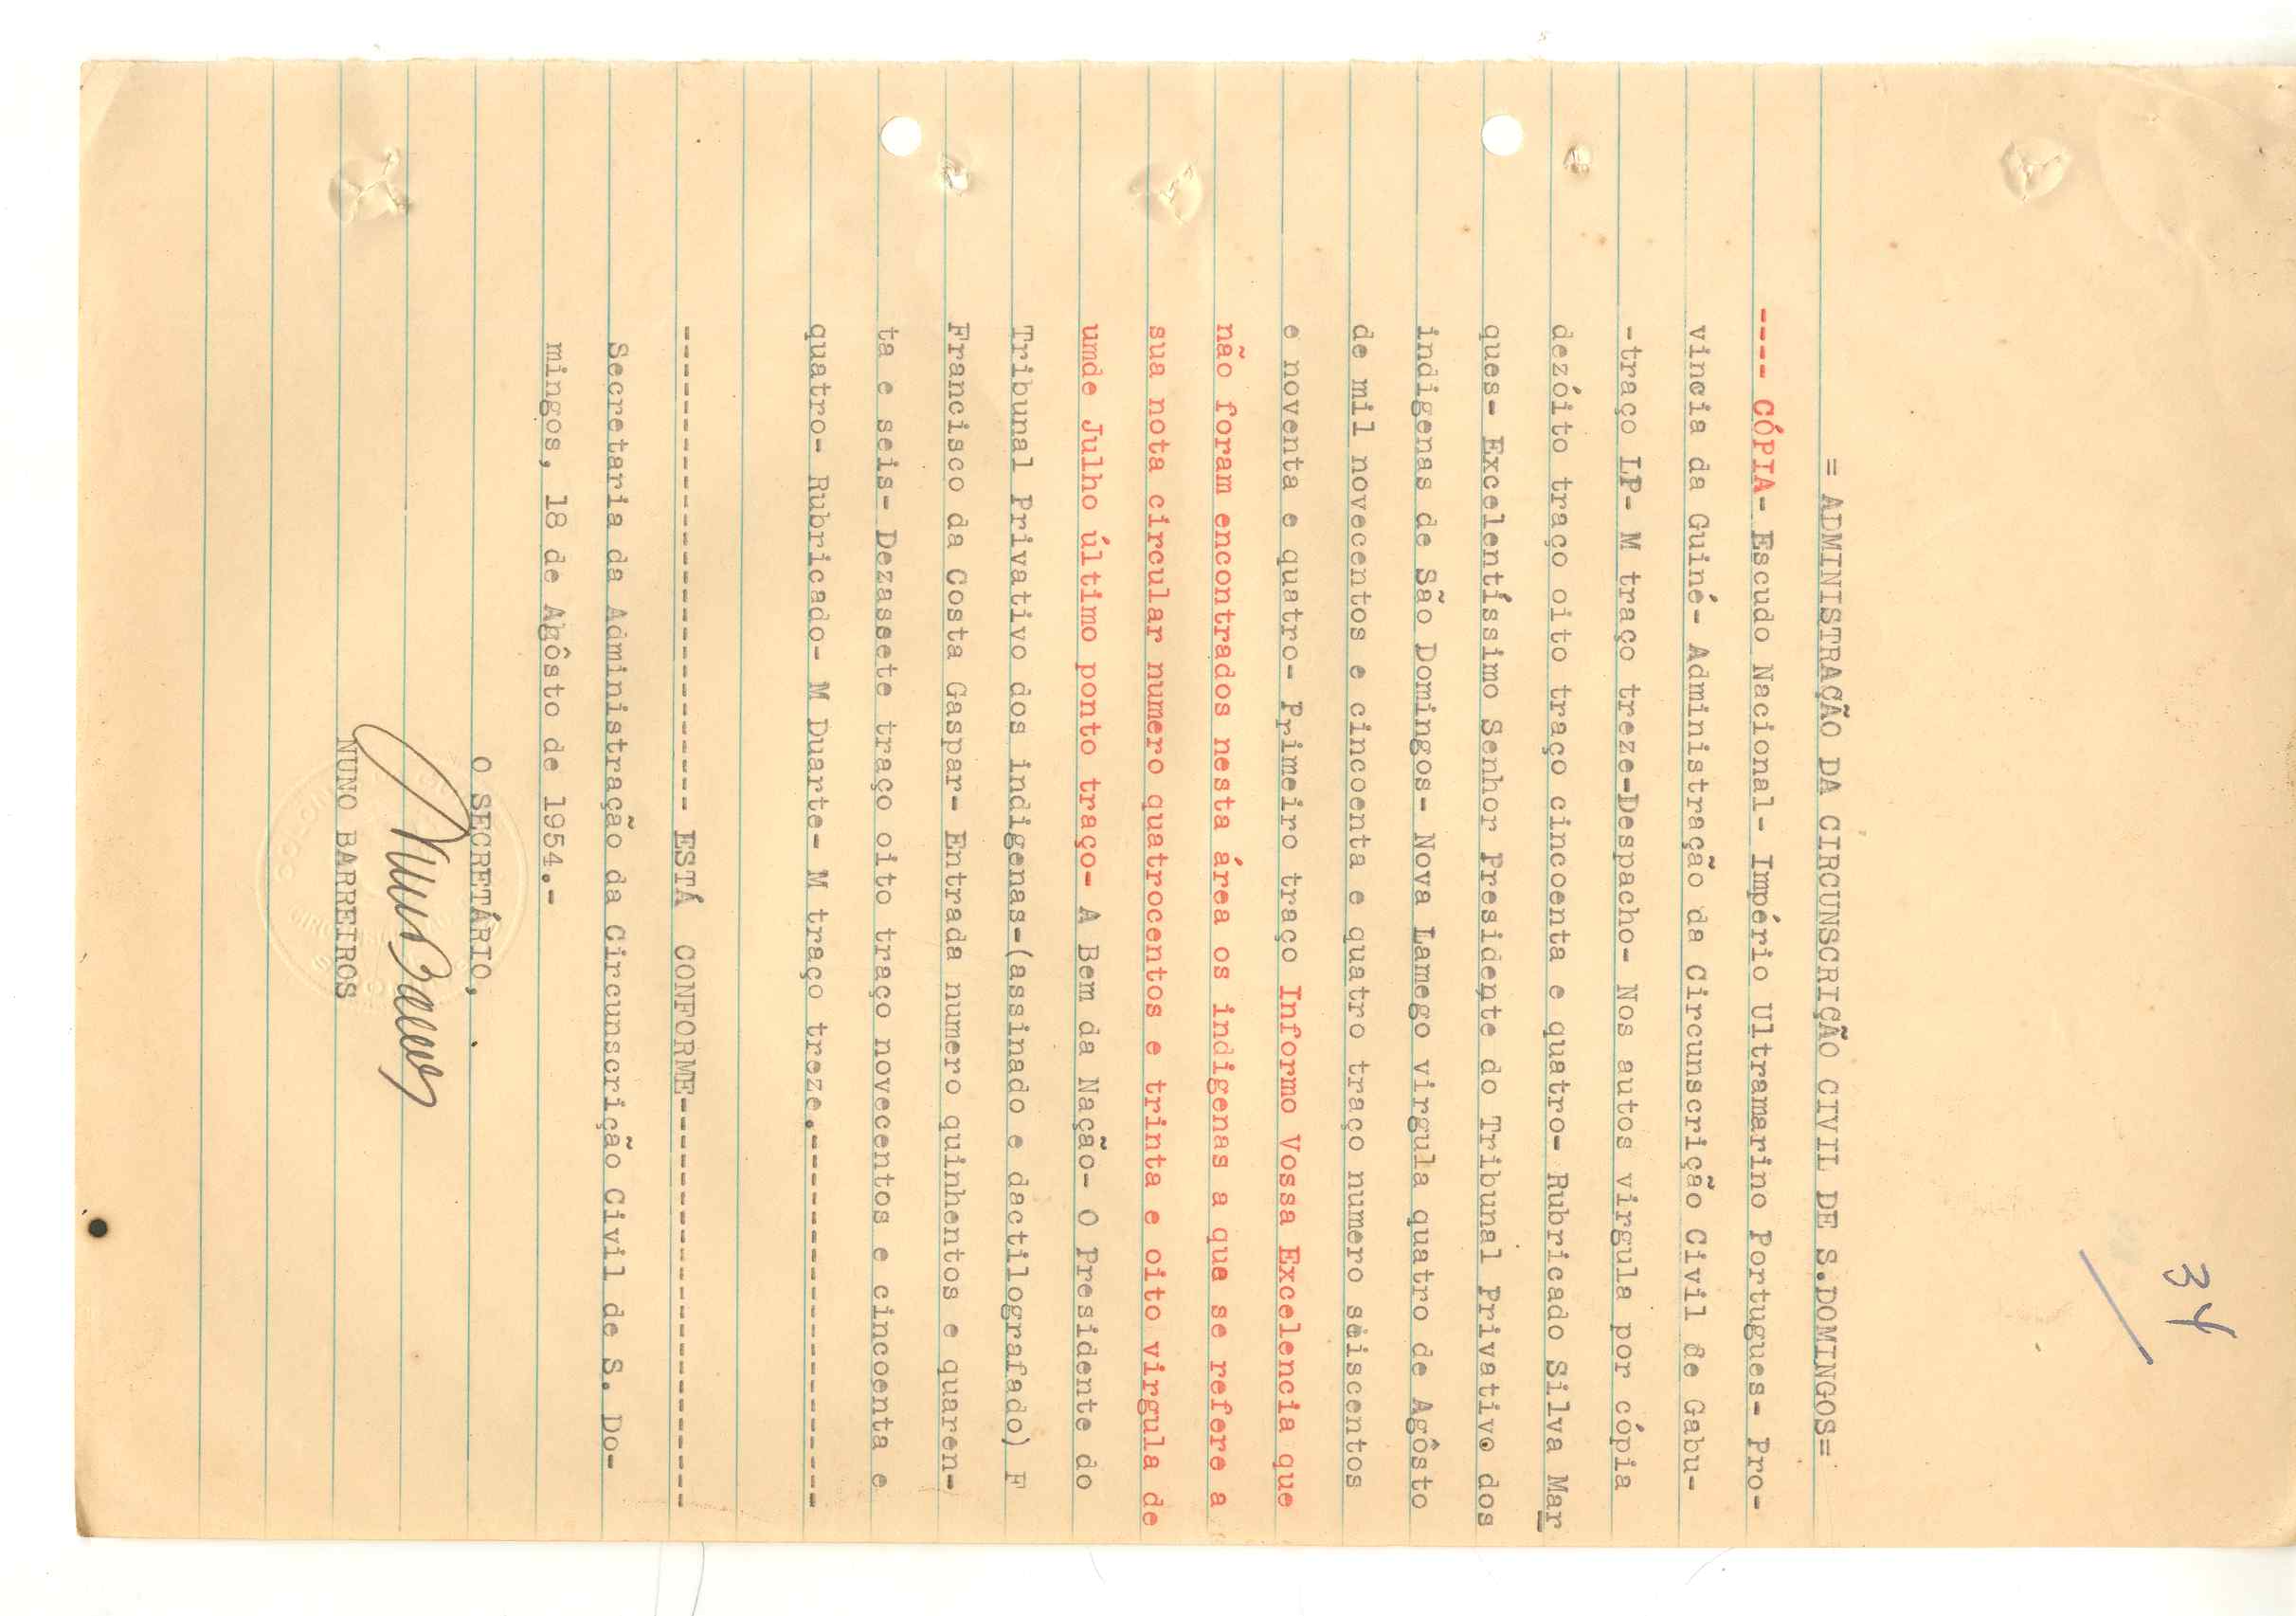 34
= ADMINISTRAÇÃO DA CIRCUNSCRIÇÃO CIVIL DE S.DOMINGOS=
---- CÓPIA- Escudo Nacional- Império Ultramarino Portugues- Pro-
vincia da Guiné- Administração da Circunscrição Civil de Gabu-
-traço LP- M traço treze-Despacho- Nos autos virgula por cópia
dezóito traço oito traço cincoenta e quatro- Rubricado Silva Mar
ques- Excelentíssimo Senhor Presidente do Tribunal Privativo dos
indigenas de São Domingos- Nova Lamego virgula quatro de Agôsto
de mil novecentos e cincoenta e quatro traço numero seiscentos
e noventa e quatro- Primeiro traço Informo Vossa Excelencia que
não foram encontrados nesta área os indigenas a que se refere a
sua nota circular numero quatrocentos e trinta e oito virgula de
umde Julho último ponto traço- A Bem da Nação- O Presidente do
Tribunal Privativo dos indigenas-(assinado e dactilografado) F
Francisco da Costa Gaspar- Entrada numero quinhentos e quaren-
ta e seis- Dezassete traço oito traço novecentos e cincoenta e
quatro- Rubricado- M Duarte- M traço treze.----------------------
----------------------------- ESTÁ CONFORME-------------------------
Secretaria da Administração da Circunscrição Civil de S. Do-
mingos, 18 de Agôsto de 1954.-
O SECRETÁRIO,
Nuno Barreiros
NUNO BARREIROS